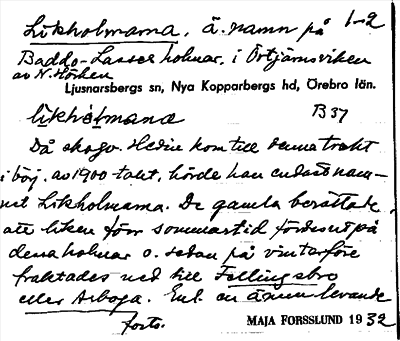 Likholmarna, ä. namn på 1-2
Baddo-Lasses holmar, i Örtjärnsviken
av N. Hörken
Ljusnarsbergs sn, Nya Kopparbergs hd, Örebro län.
likhòlmana B37
Då skogv. Hedin kom till denna trakt
i börj. av 1900 talet, hörde han endast nam-
net Likholmarna. De gamla berättade
att liken förr sommartid fördes ut på
dessa holmar o. sedan på vinterföre
fraktades ned till Fellingsbro
eller Arboga. Enl. en ännu levande
forts.
MAJA FORSSLUND 1932